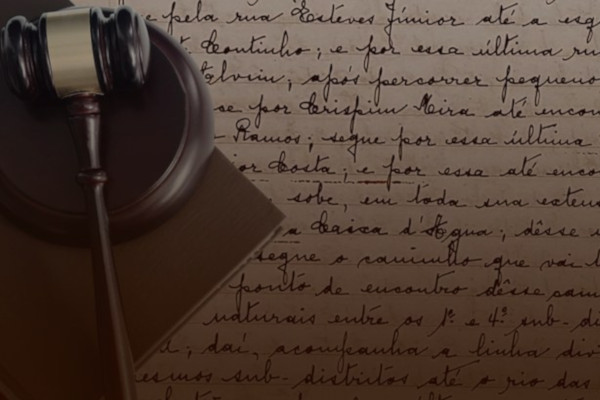 e pela rua Esteves Júnior até a esq
Coutinho; e por essa última ru
Alvim; após percorrer pequeno
se por Crispim Mira até encon
Ramos; segue por essa última
or Costa; e por essa até enco
sobe, em toda sua exten
a Caixa d'Agua; dêsse
segue o caminho que vai
ponto de encontro dêsse cam
naturais entre os 1º e 4º sub-di
; daí, acompanha a linha divi
esmos sub-distritos até o rio das